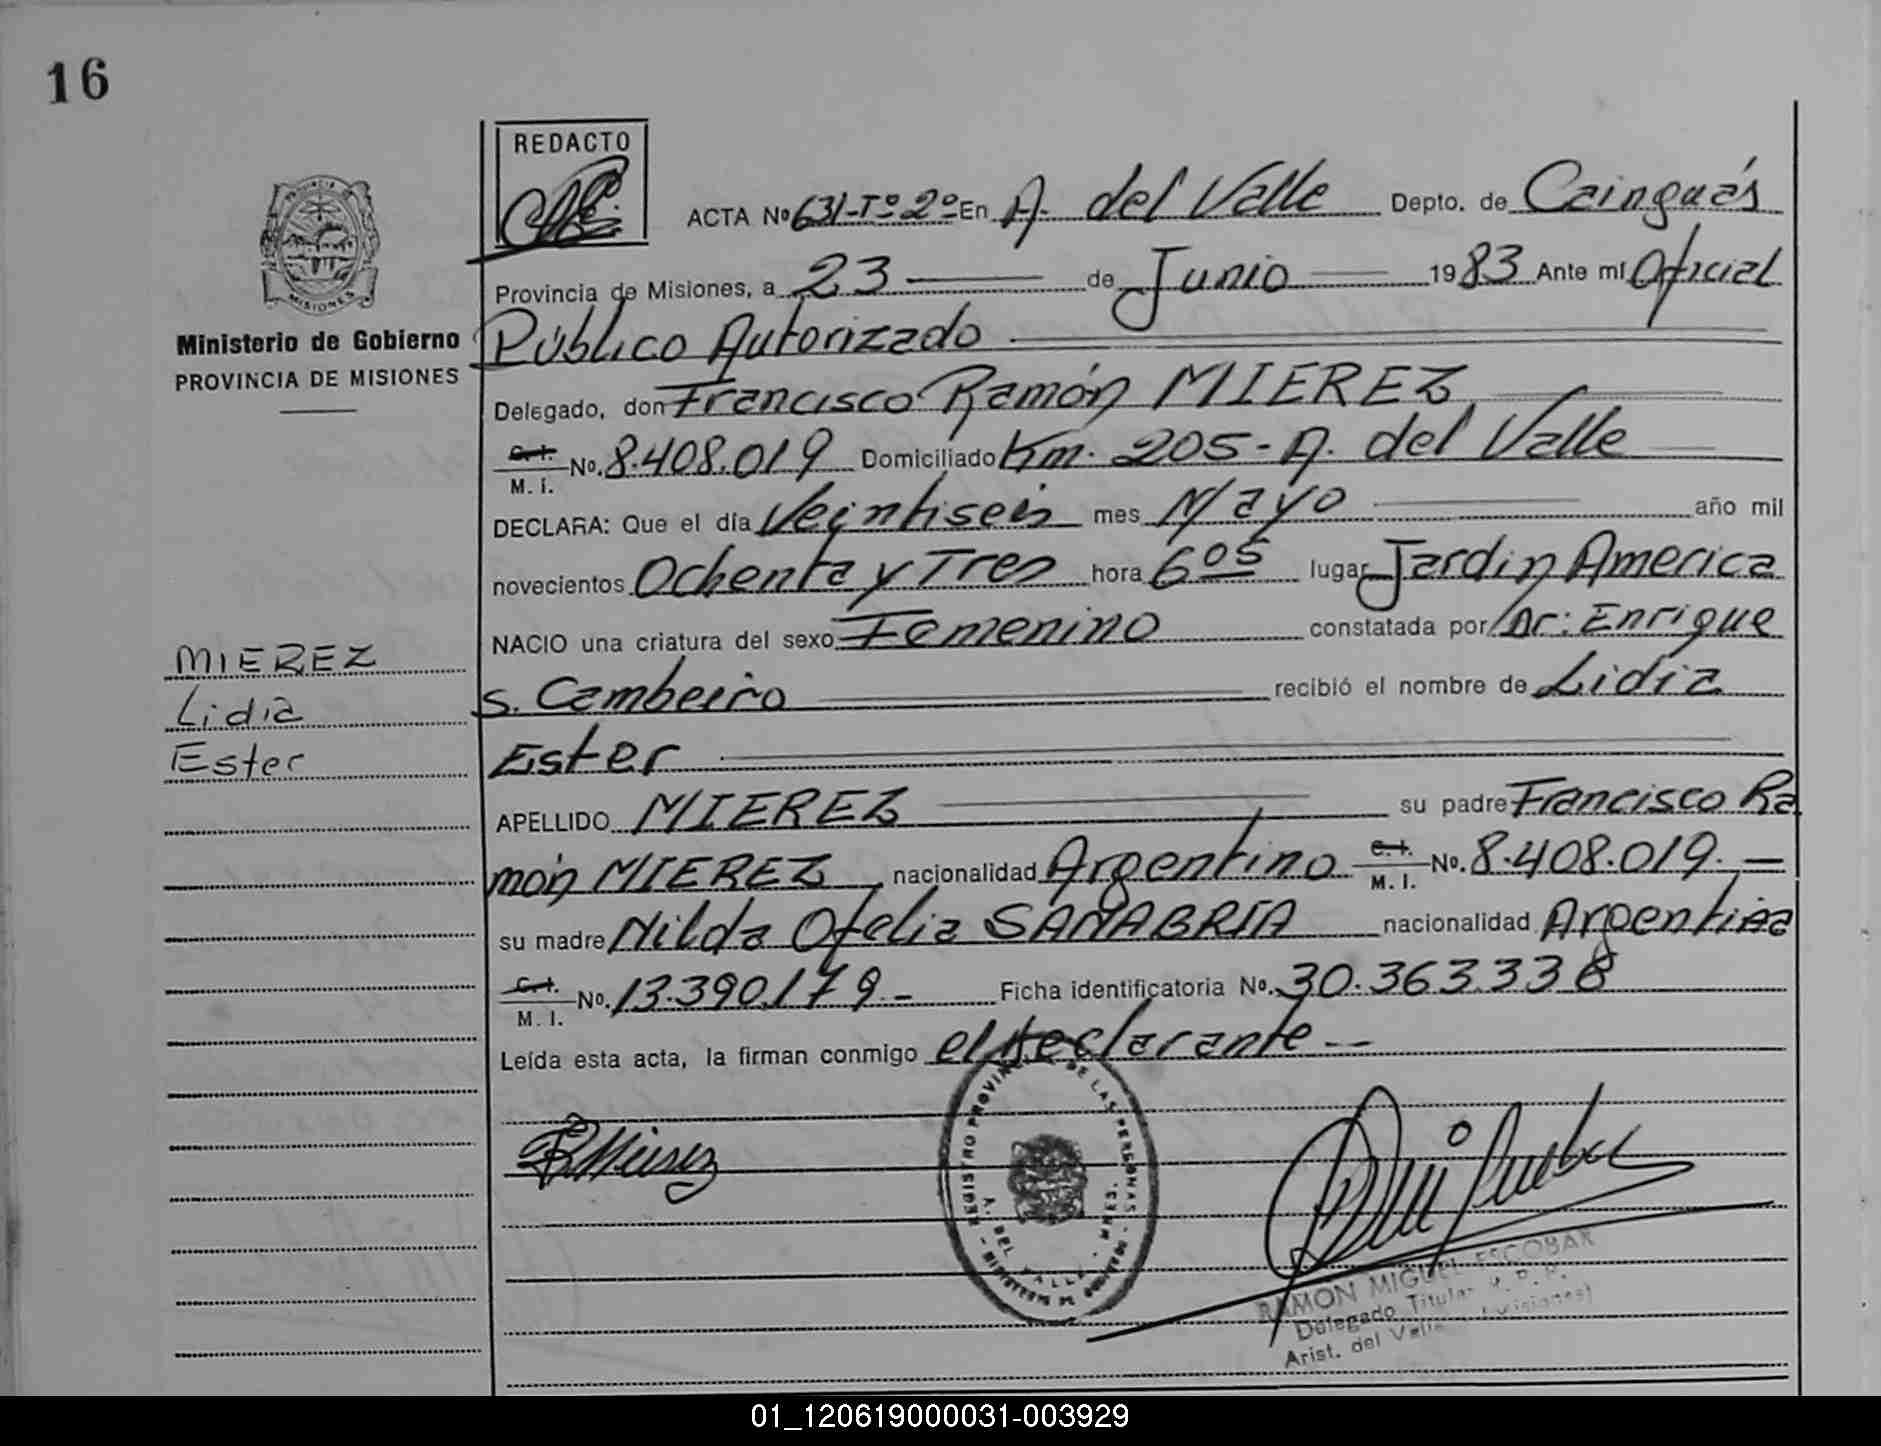 16
REDACTO
ACTA Nº 631-Tº 2º En A. del Valle Depto. de Cainguás
Provincia de Misiones, a 23 de Junio 1983 Ante mí Oficial
Público Autorizado
Ministerio de Gobierno
PROVINCIA DE MISIONES
Delegado, don Francisco Ramón MIEREZ
C.I.
M. I. No. 8.408.019 Domiciliado Km. 205 - A. del Valle
DECLARA: Que el día Veintiseis mes Mayo año mil
novecientos Ochenta y Tres hora 6 05 lugar Jardin America
NACIO una criatura del sexo Femenino constatada por Dr: Enrique
S. Cambeiro recibió el nombre de Lidia
Ester
MIEREZ
Lidia
Ester
APELLIDO MIEREZ su padre Francisco Ra
món MIEREZ nacionalidad Argentino C.I. M. I. No. 8.408.019. —
su madre Nilda Ofelia SANABRIA nacionalidad Argentina
C.I.
M. I. No. 13.390.179 - Ficha identificatoria No. 30.363.338
Leída esta acta, la firman conmigo el declarante --
REGISTRO PROVINCIAL DE LAS PERSONAS
A. DEL VALLE
RAMON MIGUEL ESCOBAR
Delegado Titular R. P. P.
Arist. del Valle (Misiones)
01_120619000031-003929